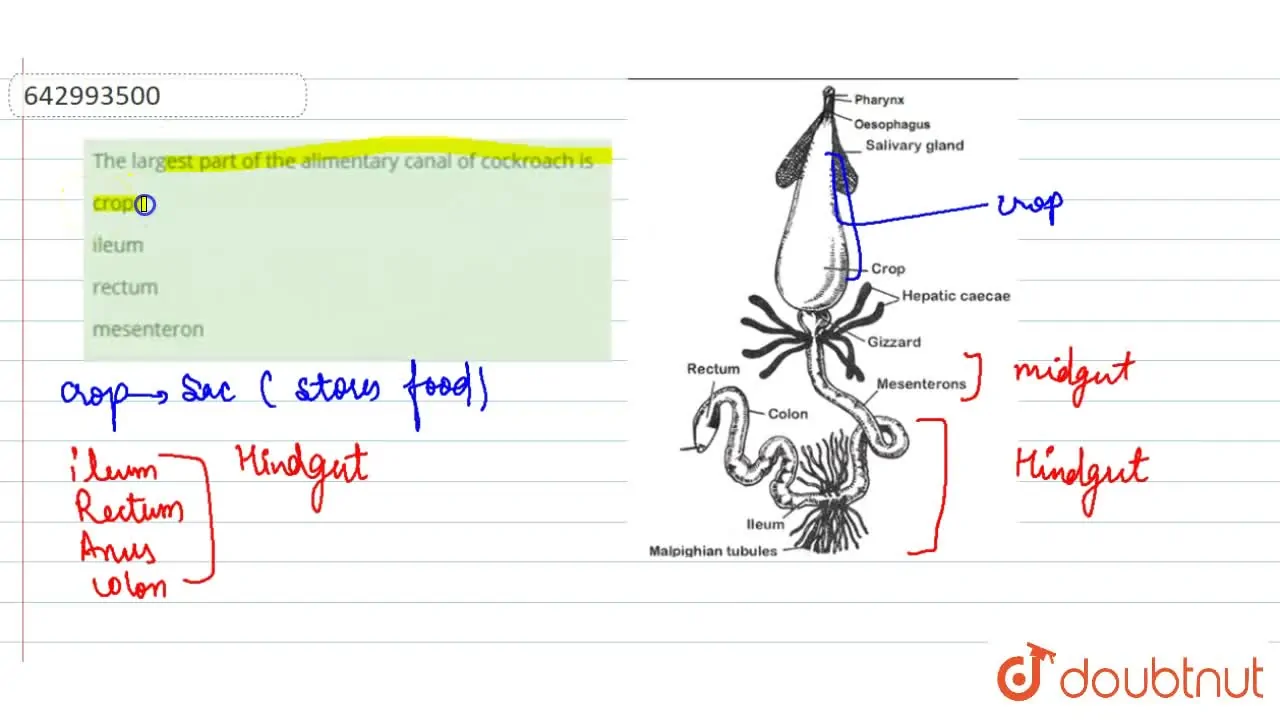 642993500
The largest part of the alimentary canal of cockroach is
crop
ileum
rectum
mesenteron
crop → Sac ( stores food)
ileum
Rectum
Anus
colon
Hindgut
Pharynx
Oesophagus
Salivary gland
crop
Crop
Hepatic caecae
Gizzard
Rectum
Mesenterons
midgut
Colon
Hindgut
Ileum
Malpighian tubules
doubtnut